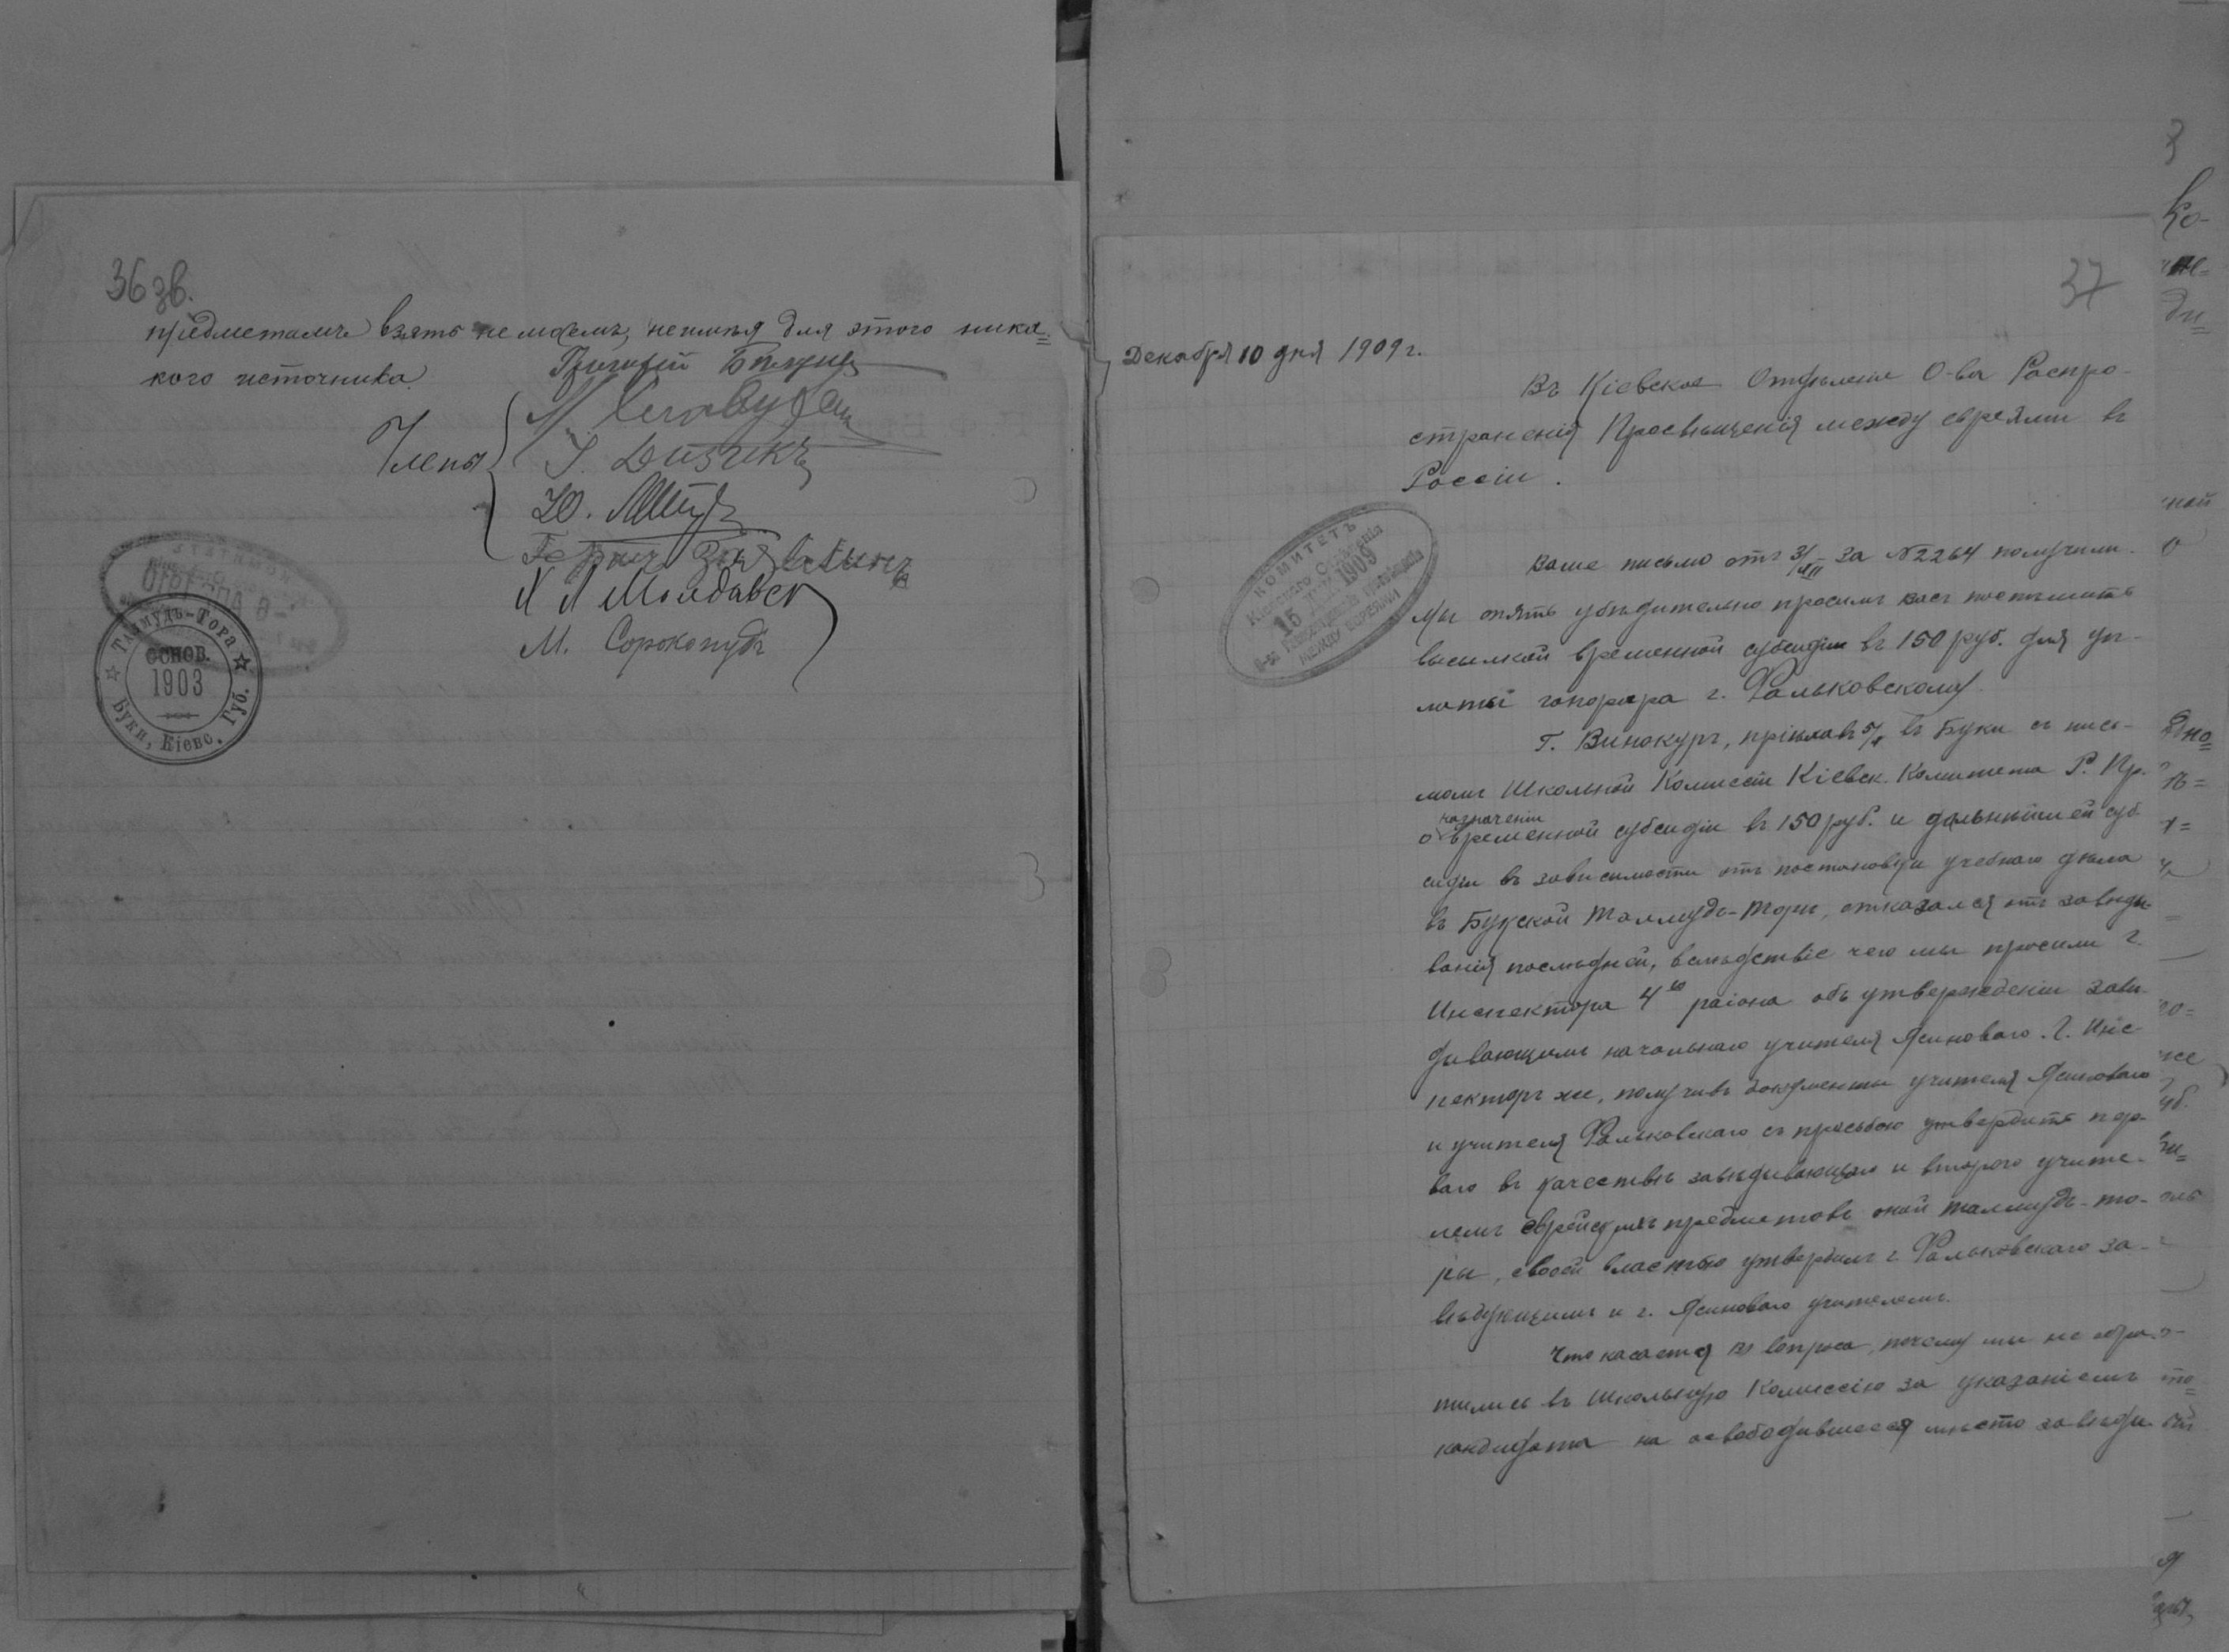 36 зв.
предметамъ взять не можемъ, неимѣя для этого ника=
кого источника.
Члены
Ю.
М. Сорокопудъ
Талмудъ-Тора
основ.
1903
Буки, Кіевс. Губ.
37
Декабря 10 дня 1909 г.
Въ Кіевское Отдѣленіе О-ва Распро-
страненія Просвѣщенія между евреями въ
Россіи.
КОМИТЕТЪ
Кіевскаго Отдѣленія
15 1909
МЕЖДУ ЕВРЕЯМИ
Ваше письмо отъ 3/XII за №2264 получили.
Мы опять убѣдительно просимъ васъ поспѣшить
высылкой временной субсидіи въ 150 руб. для уп-
латы гонорара г. Фальковскому.
Г. Винокуръ, пріѣхавъ 5/X въ Буки съ пись-
момъ Школьной Комиссіи Кіевск. Комитета Р. Пр.
о назначеніи временной субсидіи въ 150 руб. и дальнѣйшей суб-
сидіи въ зависимости отъ постановки учебнаго дѣла
въ Букской Талмудъ-Торѣ, отказался отъ завѣды-
ванія послѣдней, вслѣдствіе чего мы просили г.
Инспектора 4го раіона объ утвержденіи завѣ-
дывающимъ начальнаго учителя Ясиноваго. Г. Инс-
пекторъ же, получивъ документы учителя Ясиноваго
и учителя Фальковскаго съ просьбою утвердить пер-
ваго въ качествѣ завѣдывающаго и второго учите-
лемъ еврейскихъ предметовъ оной талмудъ-то-
ры, своей властью утвердилъ г. Фальковскаго за-
вѣдующимъ и г. Ясиноваго учителемъ.
Что касается вопроса, почему мы не обра-
тились въ Школьную Комиссію за указаніемъ
кандидата на освободившееся мѣсто завѣды-